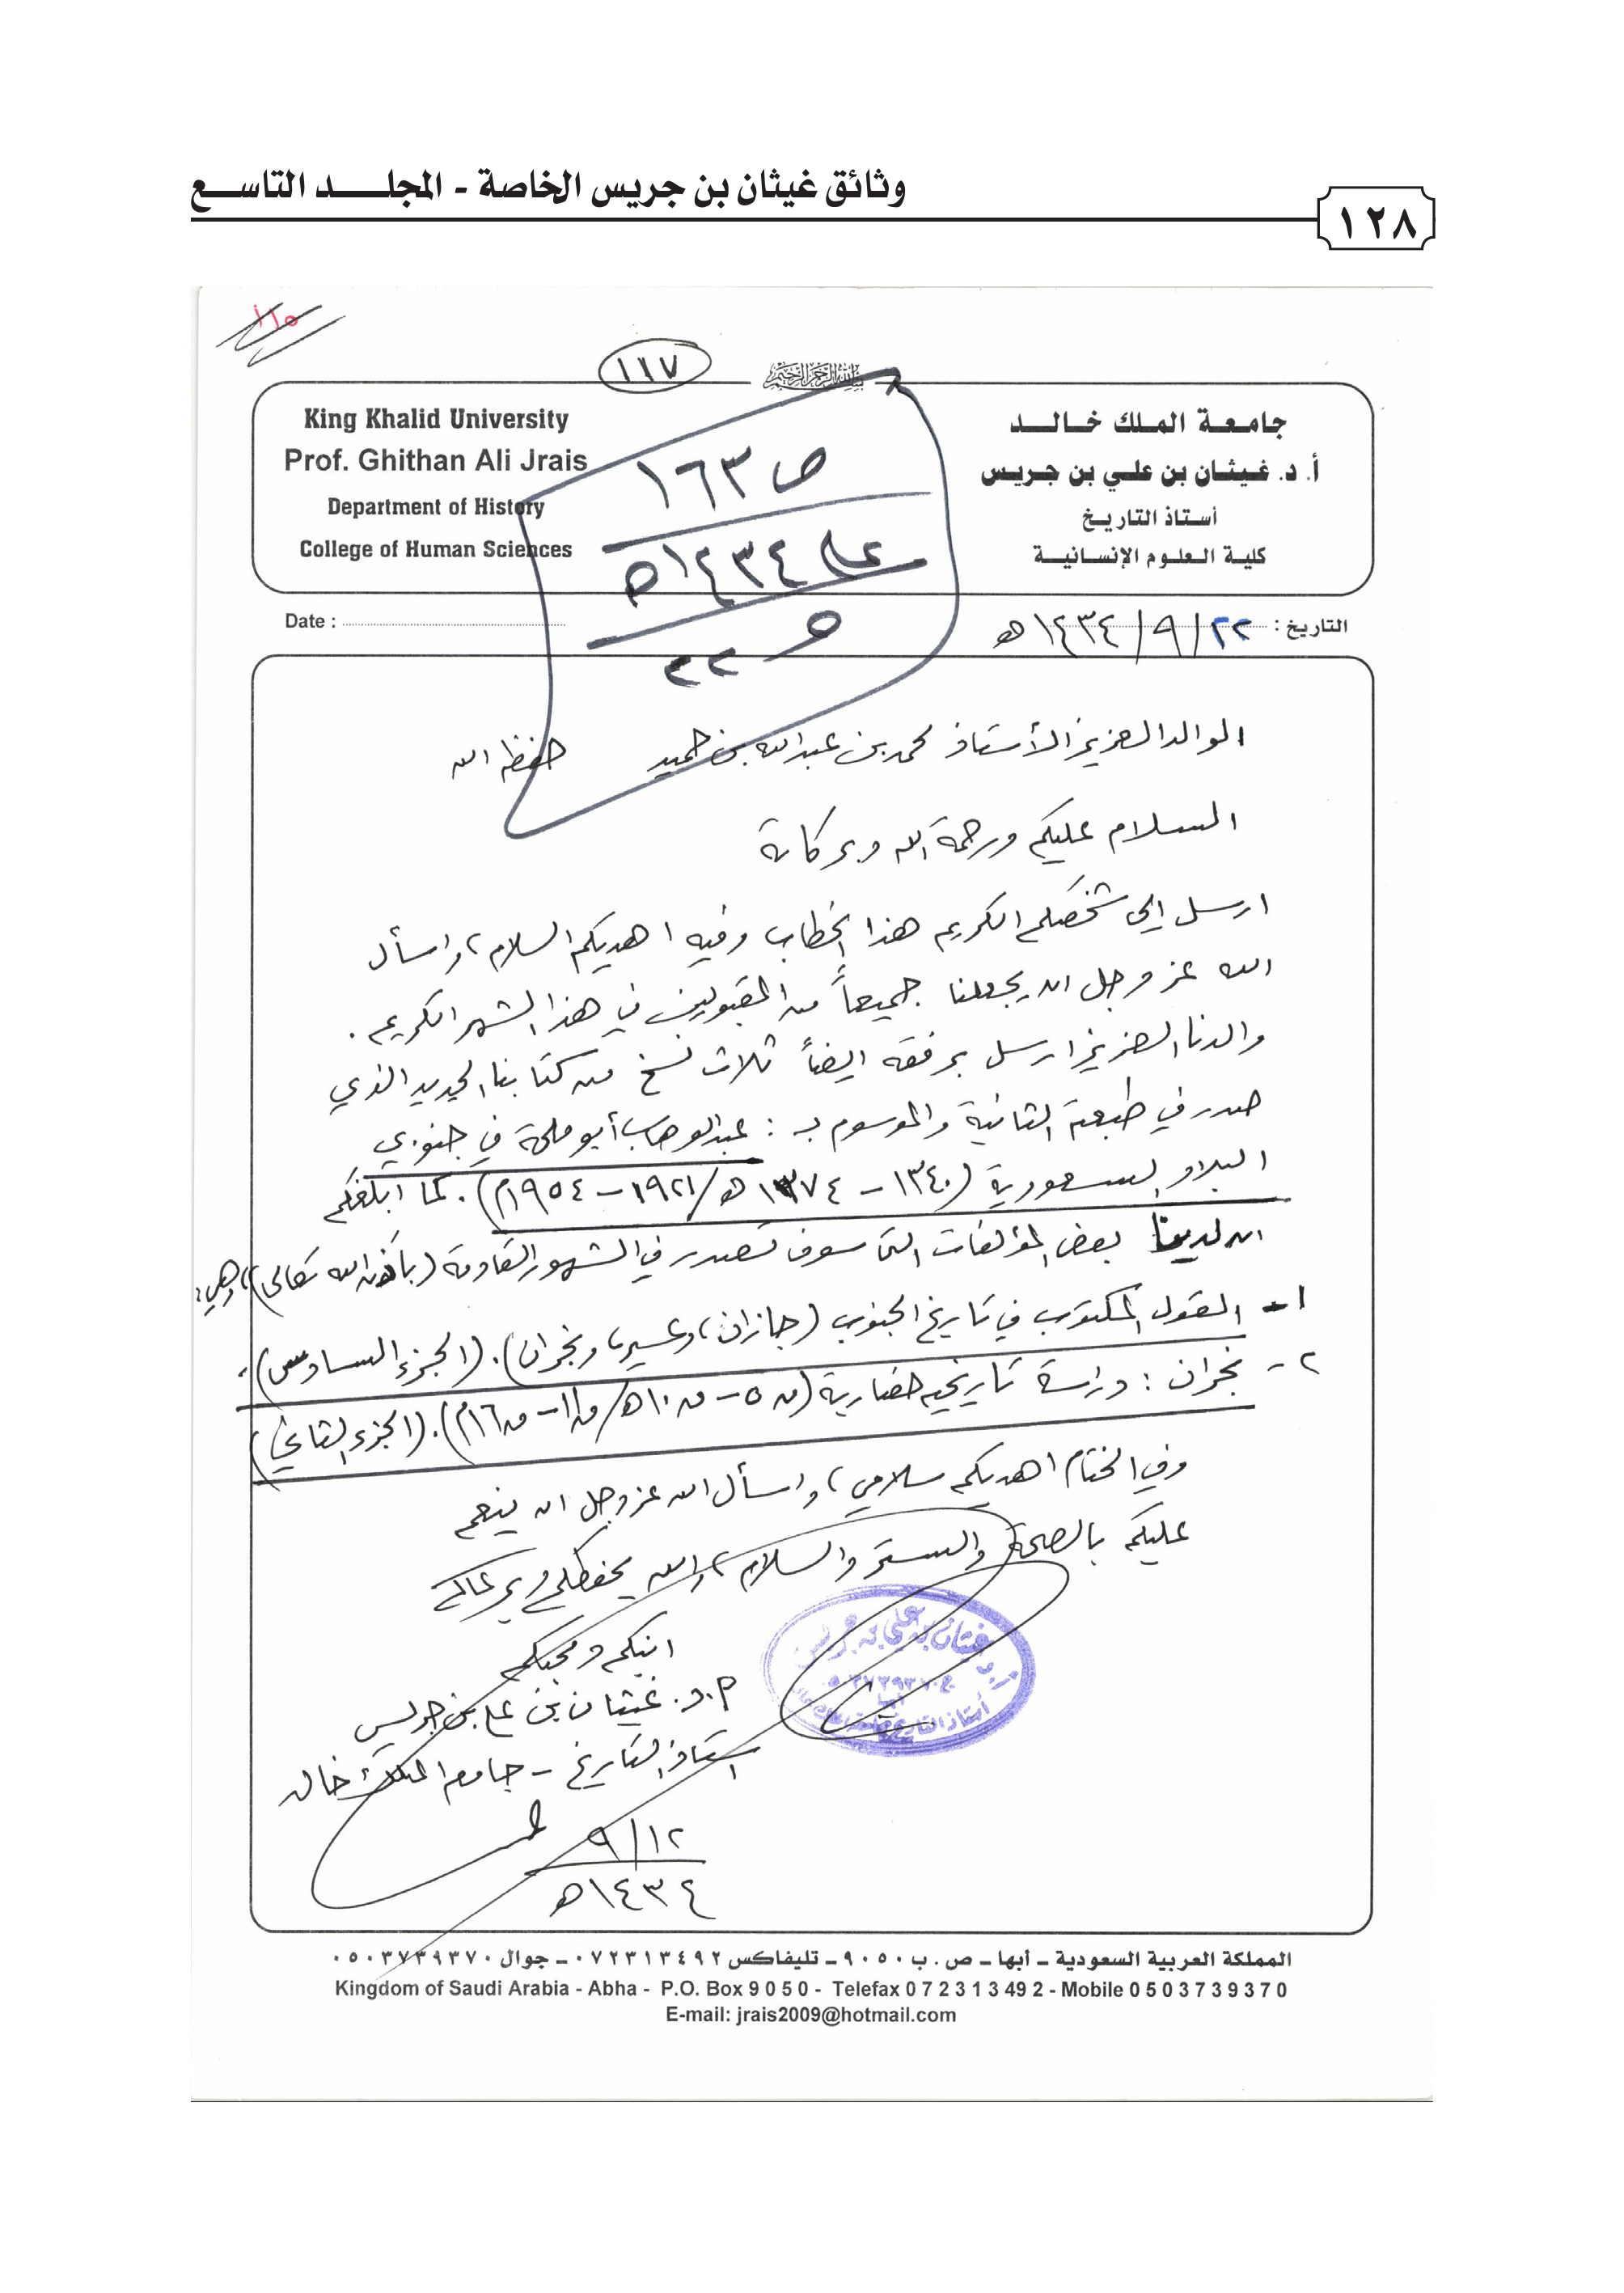 وثائق غيثان بن جريس الخاصة - المجلـــد التاســع
١٢٨
١١٥
١١٧
بسم الله الرحمن الرحيم
King Khalid University
Prof. Ghithan Ali Jrais
Department of History
College of Human Sciences
جامعة الملك خالد
أ. د. غيثان بن علي بن جريس
أستاذ التاريخ
كلية العلوم الإنسانية
ص ١٦٣
١٤٣٤هـ
Date :
التاريخ : ٢٢/٩/١٤٣٤هـ
الوالد العزيز الأستاذ محمد بن عبدالله بن حميد حفظه الله
السلام عليكم ورحمة الله وبركاته
ارسل إلى شخصكم الكريم هذا الخطاب وفيه اهديكم السلام، واسأل
الله عز وجل ان يجعلنا جميعاً من المقبولين في هذا الشهر الكريم .
والدنا العزيز ارسل برفقه ايضاً ثلاث نسخ من كتابنا الجديد الذي
صدر في طبعته الثانية والموسوم بـ : عبدالوهاب أبو ملحة في جنوبي
البلاد السعودية (١٣٤٠ - ١٣٧٤هـ/١٩٢١ - ١٩٥٤م). كما ابلغكم
ان لدينا بعض المؤلفات التي سوف تصدر في الشهور القادمة (بإذن الله تعالى)، وهي:
١- القول المكتوب في تاريخ الجنوب (جازان، وعسير، ونجران). (الجزء السادس).
٢- نجران : دراسة تاريخية حضارية (ق٥ - ق١٠هـ/ق١١ - ق١٦م). (الجزء الثاني)
وفي الختام اهديكم سلامي، واسأل الله عز وجل ان ينعم
عليكم بالصحة والستر والسلام، والله يحفظكم ويرعاكم
ابنكم ومحبكم
أ.د. غيثان بن علي بن جريس
استاذ التاريخ - جامعة الملك خالد
١٢/٩
١٤٣٤هـ
غيثان بن علي بن جريس
أبها
المملكة العربية السعودية - أبها - ص . ب ٩٠٥٠ - تليفاكس ٠٧٢٣١٣٤٩٢ - جوال ٠٥٠٣٧٣٩٣٧٠
Kingdom of Saudi Arabia - Abha - P.O. Box 9 0 5 0 - Telefax 0 7 2 3 1 3 49 2 - Mobile 0 5 0 3 7 3 9 3 7 0
E-mail: jrais2009@hotmail.com